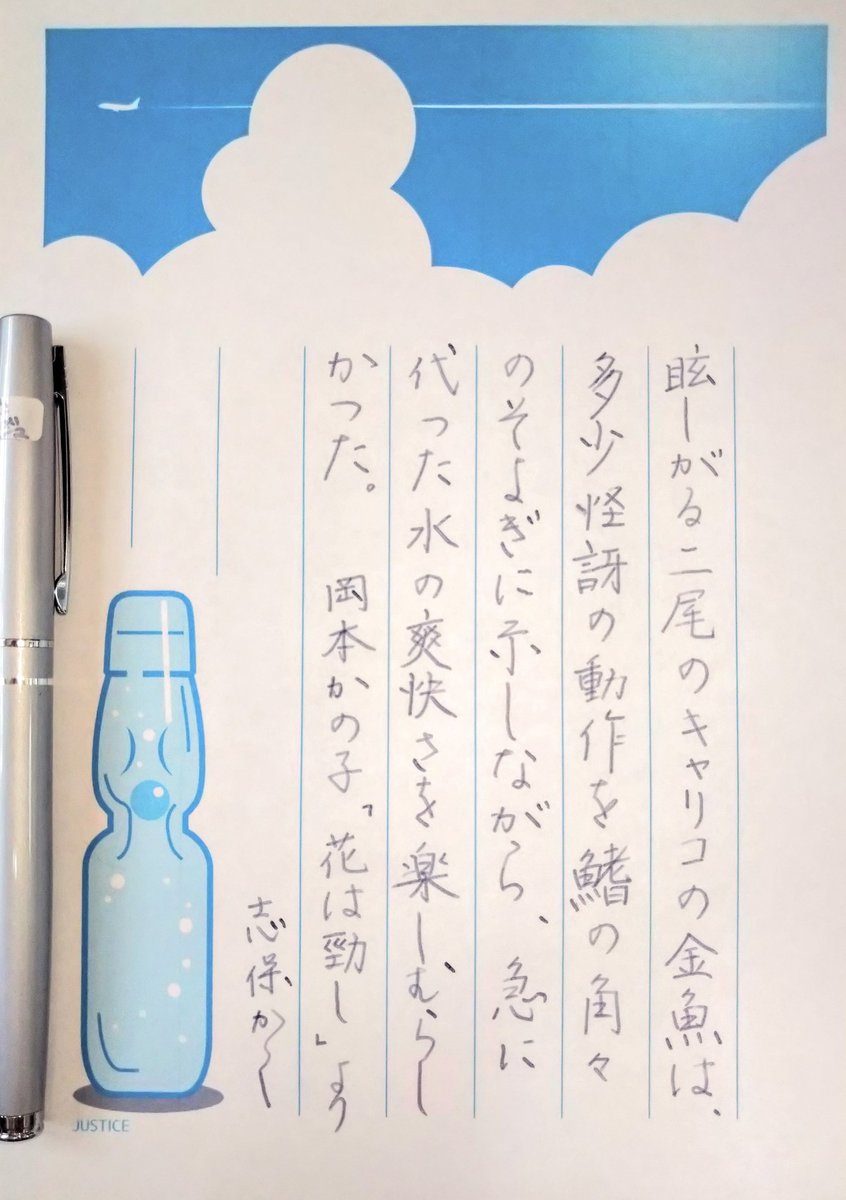 眩しがる二尾のキャリコの金魚は、
多少怪訝の動作を鰭の角々
のそよぎに示しながら、急に
代った水の爽快さを楽しむらし
かった。 岡本かの子「花は勁し」より
志保かく
JUSTICE